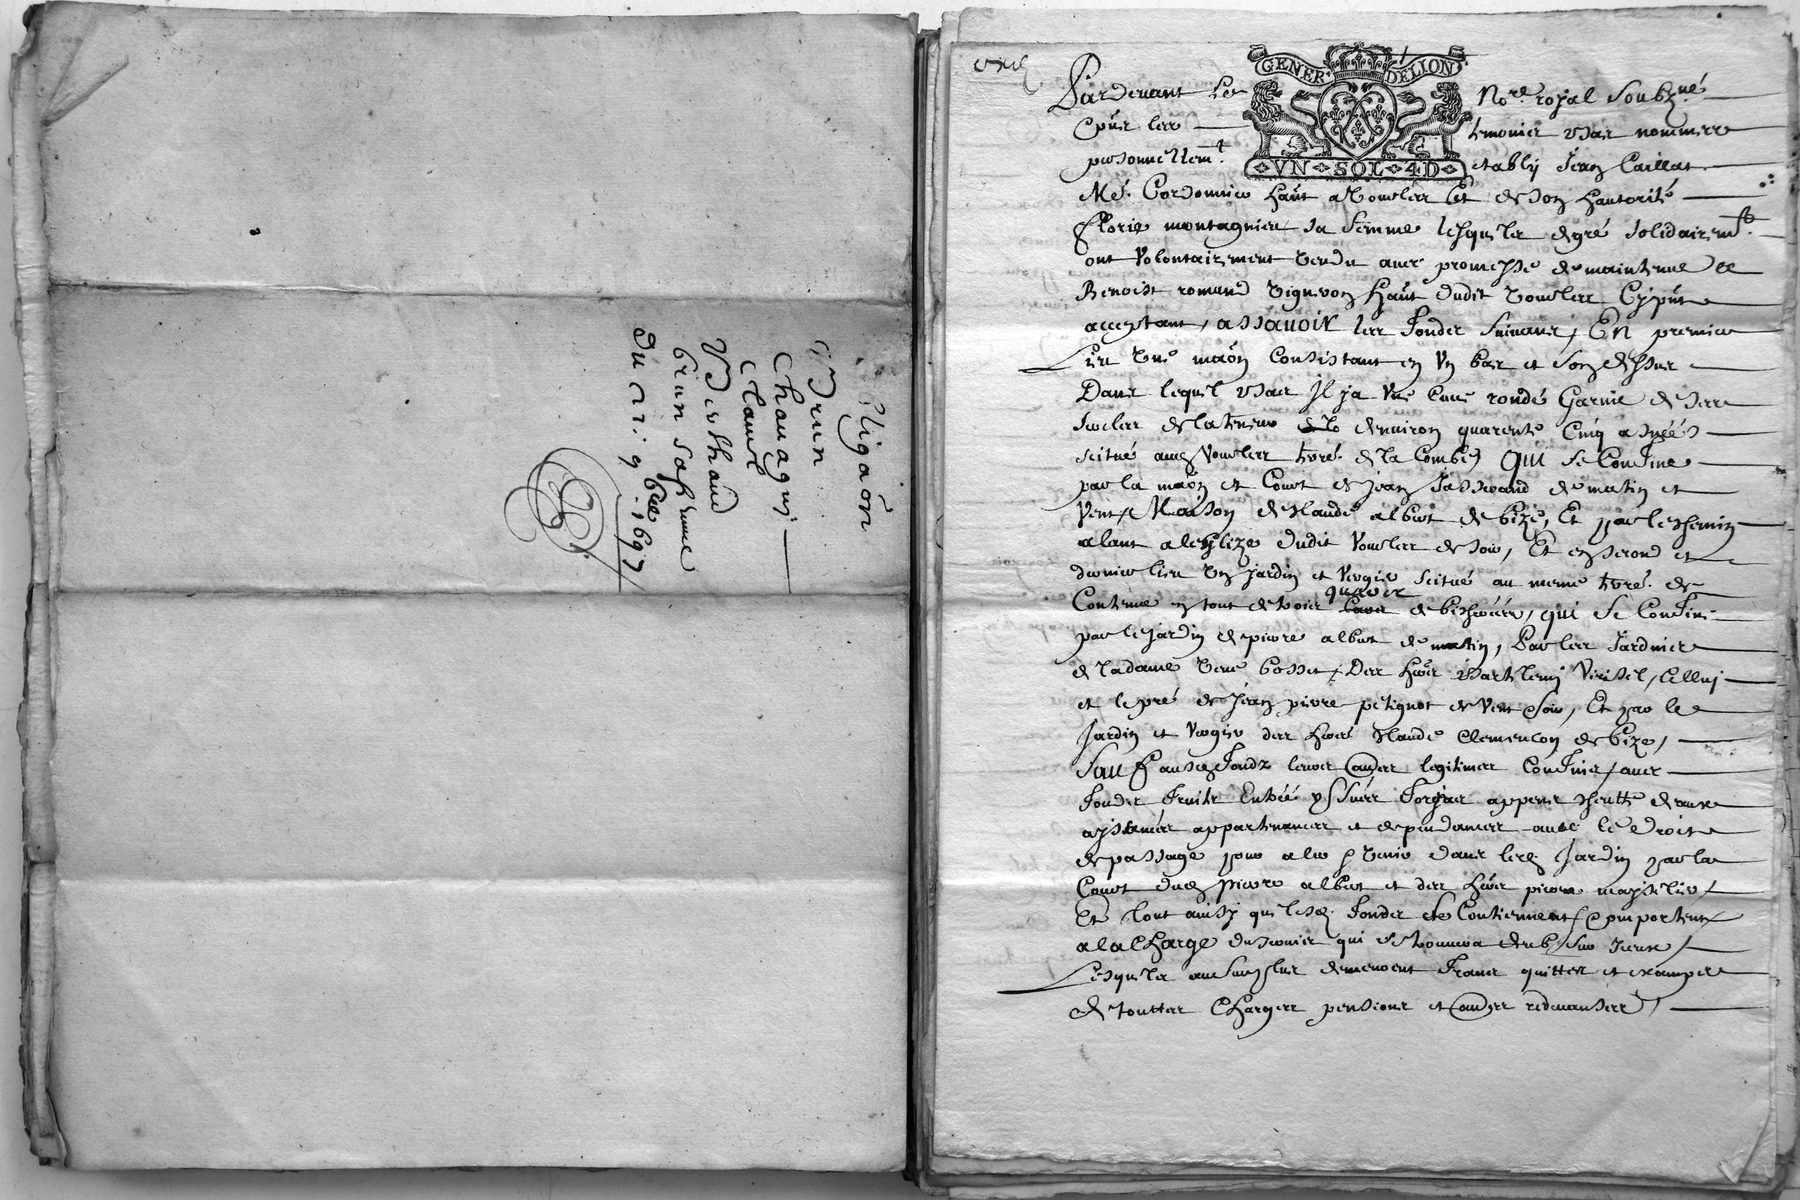 obligaõn
Brun
Chauagny
Claude
Berthaud
brun sa femme
du
9
bre
1697
GENER DELION
VN SOL 4D
Pardeuant Le Nore. royal Soubzné
Et pñt les temoins bas nommes
personnellemt. estably Jean Caillat
Me. Cordonnier habt a Vourles Et de son hautorité
florie montagnieu sa femme lesquels de gré solidairemt.
ont Volontairement Vendu auec promesse de maintenue a
Benoist romand Vigneron habt dudit Vourles Cy pñt
acceptant, assauoir les fonds suiuans, En premier
Lieu Vne maõn Consistant en Vn bas et son dessus
Dans lequel bas Il ja Vne Cuue ronde Garnie de ses
sercles de la teneur denuiron quarente Cinq asnées
scitué aud Vourles terre. de la Combe QUi se Confine
par la maõn et Court de Jean de matin et
Vent, Maison de Claude albert de bize, Et par le chemin
alant a leglize dudit Vourles de soir, Et en second et
dernier lieu Vn jardin et Verger scitué au meme terre. de
quatre
Contenue en tout de trois de bicherées, qui se Confine
par le jardin de pierre albert de matin, Par les Jardins
de la dame Veue bosset, Des hers bartelemj Verisel, Celluj
et le pré de Jean pierre petignot de Vent Soir, Et par le
Jardin et Verger des hers Claude Clemencon de bize,
Sauf ausd fondz leurs autres legitimes Confins, auec
fonds fruits Entrée yssues forjas appens cheutte deaux
aysances appartenances et dependances auec le droit
de passage pour aler Et Venir dans led Jardin par la
Court dud pierre albert et des hers pierre
Et tout ainsy que lesd. fonds se Contiennent Et comportent
a la Charge du seruis qui se trouuera deub sur Iceux,
Lesquels au surplus demeurent francs quittes et exampts
de touttes Charges pensions et autres redeuanses,